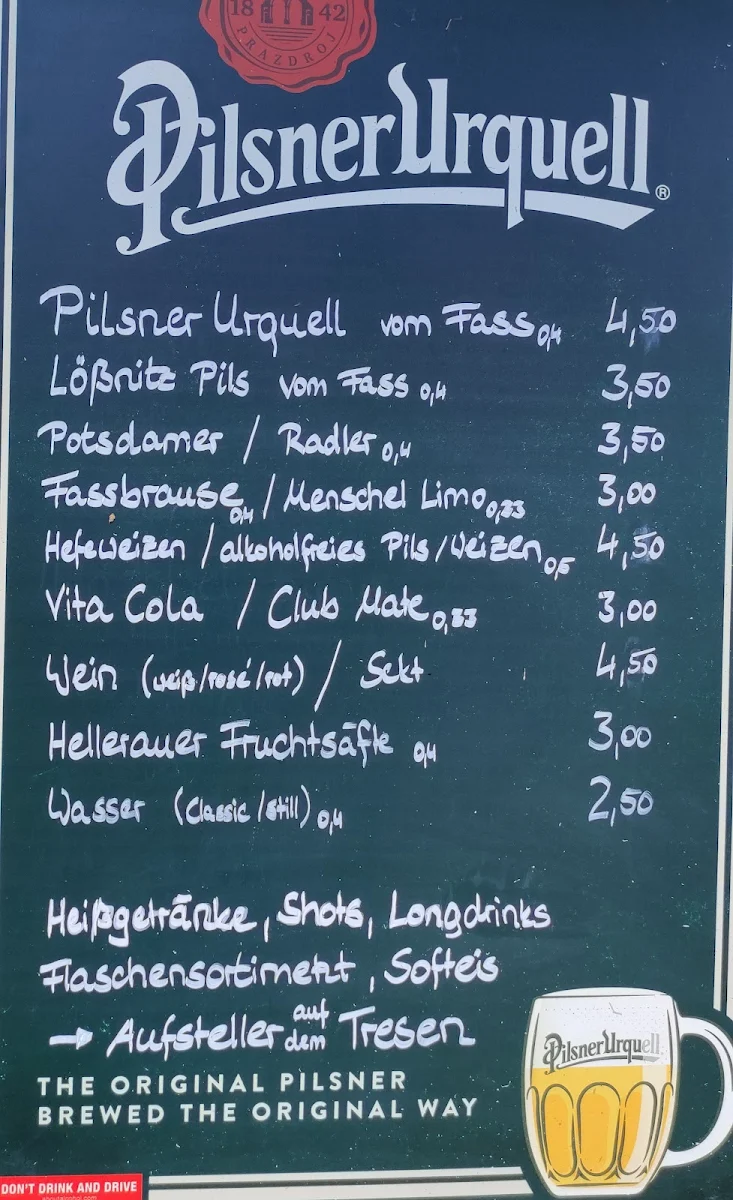 18 42
PRAZDROJ
Pilsner Urquell ®
Pilsner Urquell vom Fass 0,4 4,50
Lößnitz Pils vom Fass 0,4 3,50
Potsdamer / Radler 0,4 3,50
Fassbrause 0,4 / Menschel Limo 0,33 3,00
Hefeweizen / alkoholfreies Pils / Weizen 0,5 4,50
Vita Cola / Club Mate 0,33 3,00
Wein (weiß/rosé/rot) / Sekt 4,50
Hellerauer Fruchtsäfte 0,4 3,00
Wasser (Classic / still) 0,4 2,50
Heißgetränke, Shots, Longdrinks
Flaschensortiment, Softeis
→ Aufsteller auf dem Tresen
Pilsner Urquell
THE ORIGINAL PILSNER
BREWED THE ORIGINAL WAY
DON'T DRINK AND DRIVE